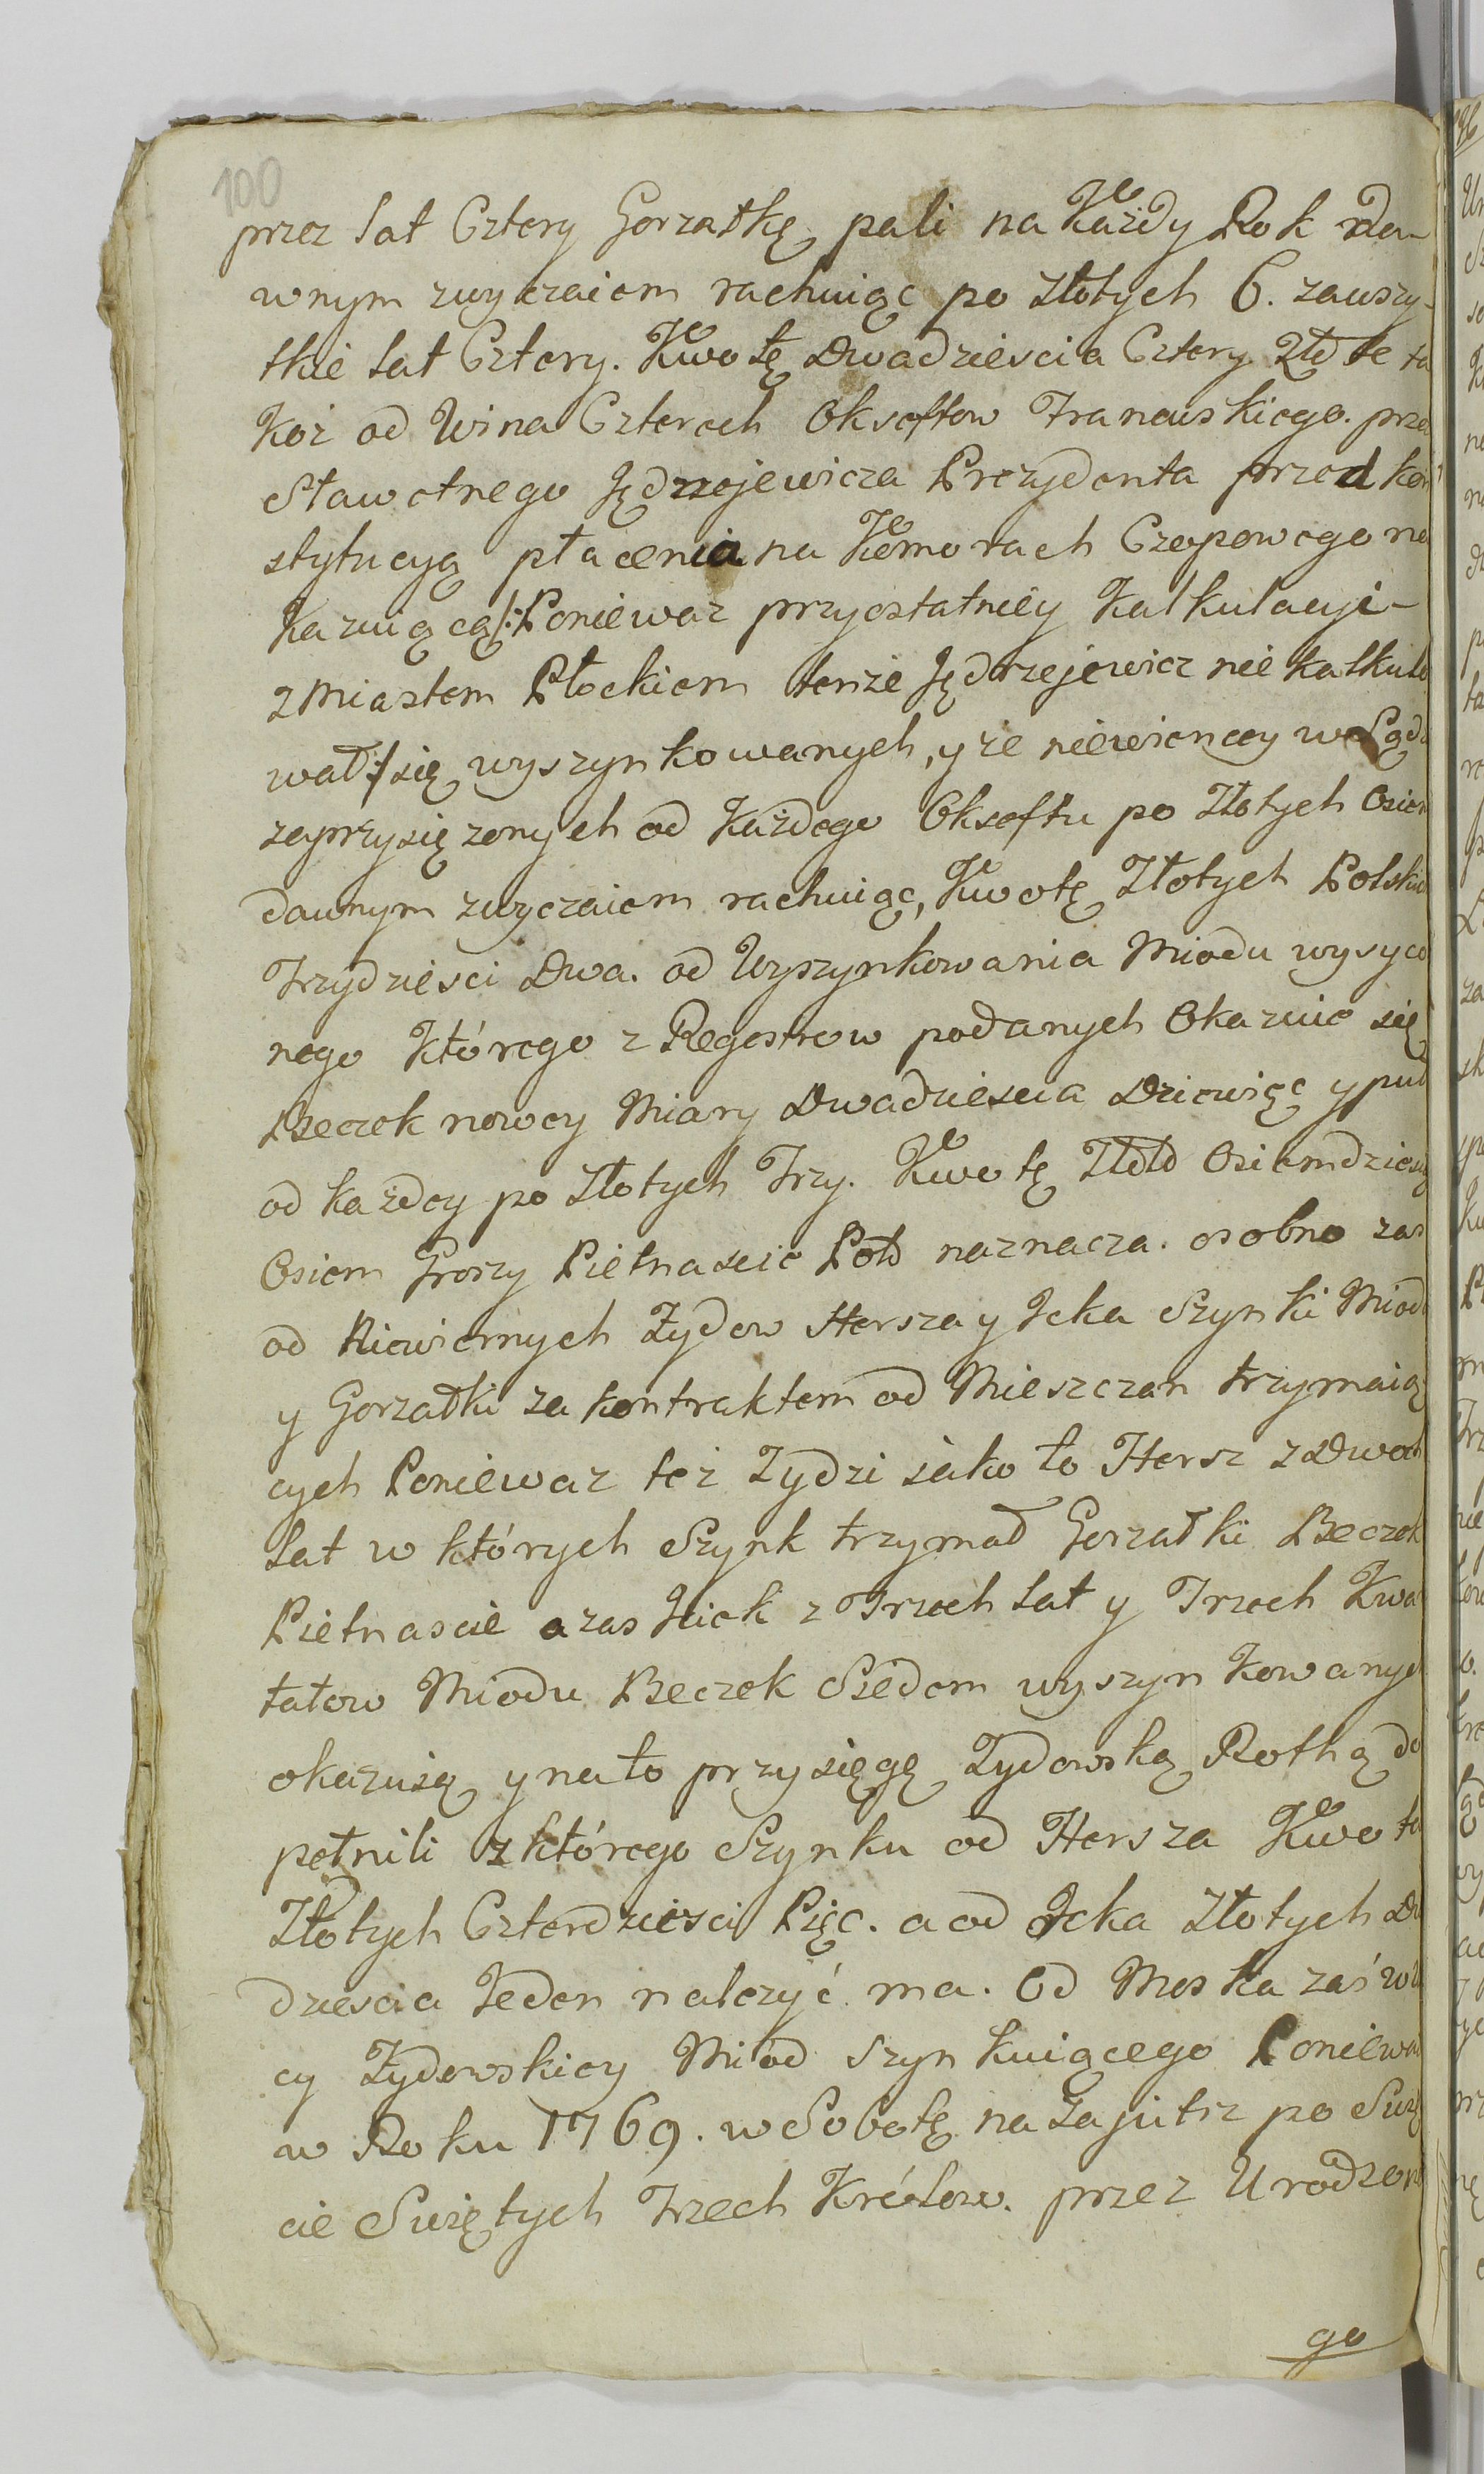 100
przez lat Cztery Gorzałkę pali na Każdy Rok zda-
wnym zwyczaiem rachuiąc po złotych 6. zawszy-
tkie lat Cztery. Kwotę Dwadziescia Cztery Złł te ta
koż od Wina Czterech Okseftow Francuskiego. prze
Sławetnego Jędrzejewicza Prezydenta przed kon
stytucyą płacenia na Komorach Czopowego na
kazuiącą /: Poniewaz przyostatniey Kalkulacyi-
z Miastem Płockiem tenże Jędrzejewicz nie kalkulo
wał :/ się wyszynkowanych, y ze niewiencey w Sądz
zaprzysięzonych od Każdego Okseftu po Złotych Osiem
dawnym zwyczaiem rachuiąc, Kwotę Złotych Polskic
Trzydziesci Dwa. od Wyszynkowania Miodu wysyco
nego którego z Regestrow podanych Okazuie się
Beczek nowey Miary Dwadziescia Dziewięc y puł
od każdey po Złotych Trzy. Kwotę Złłł Osiemdziesią
Osiem Groszy Pietnascie Poll naznacza. osobno zas
od Niewiernych Żydow Hersza y Icka Szynki Miodu
y Gorzałki za kontraktem od Mieszczan trzymaią
cych Poniewaz też Żydzi iako to Hersz z Dwoch
Lat w których Szynk trzymał Gorzałki Beczek
Pietnascie a zas Jcick z Trzech Lat y Trzech Kwar
tałow Miodu Beczek Siedem wyszynkowanych
okazuią y nato przysięgę Zydowską Rothą do
pełnili z którego Szynku od Hersza Kwota
Złotych Czterdziesci Pięc. a od Icka Złotych Dw
dziescia Jeden nalezyć ma. Od Moska zaś w Uli
cy Żydowskiey Miod szynkuiącego Poniewaz
w Roku 1769. w Sobotę nazajutrz po Swię
cie Swiętych Trzech Królow. przez Urodzone
go